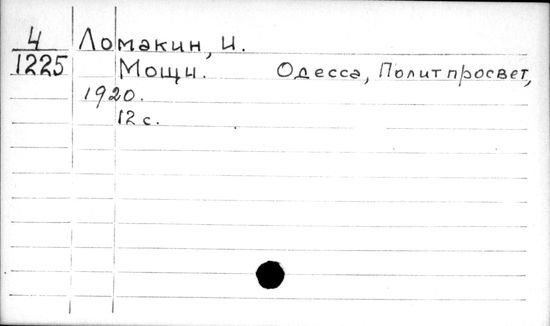 4 Ломакин, И.
1225 Мощи. Одесса, Политпросвет,
1920.
12 с.